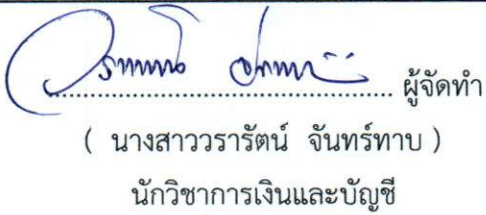 ........................................ ผู้จัดทำ
( นางสาววรารัตน์ จันทร์ทาบ )
นักวิชาการเงินและบัญชี